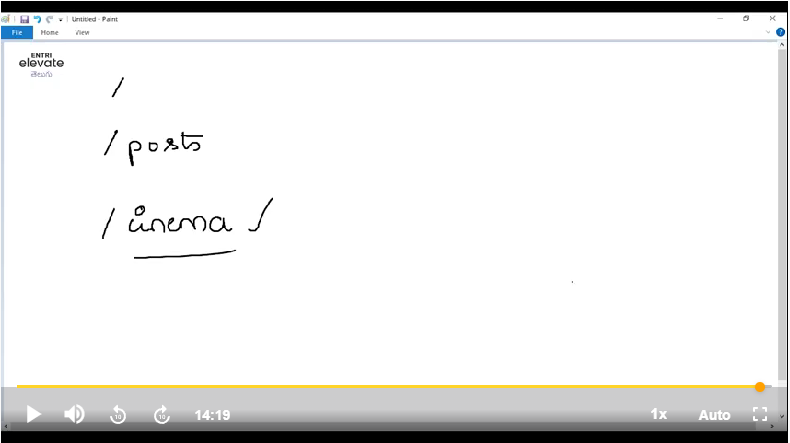 Untitled - Paint
File Home View
ENTRI
elevate
తెలుగు
/
/ posts
/ cinema /
10 10 14:19 1x Auto